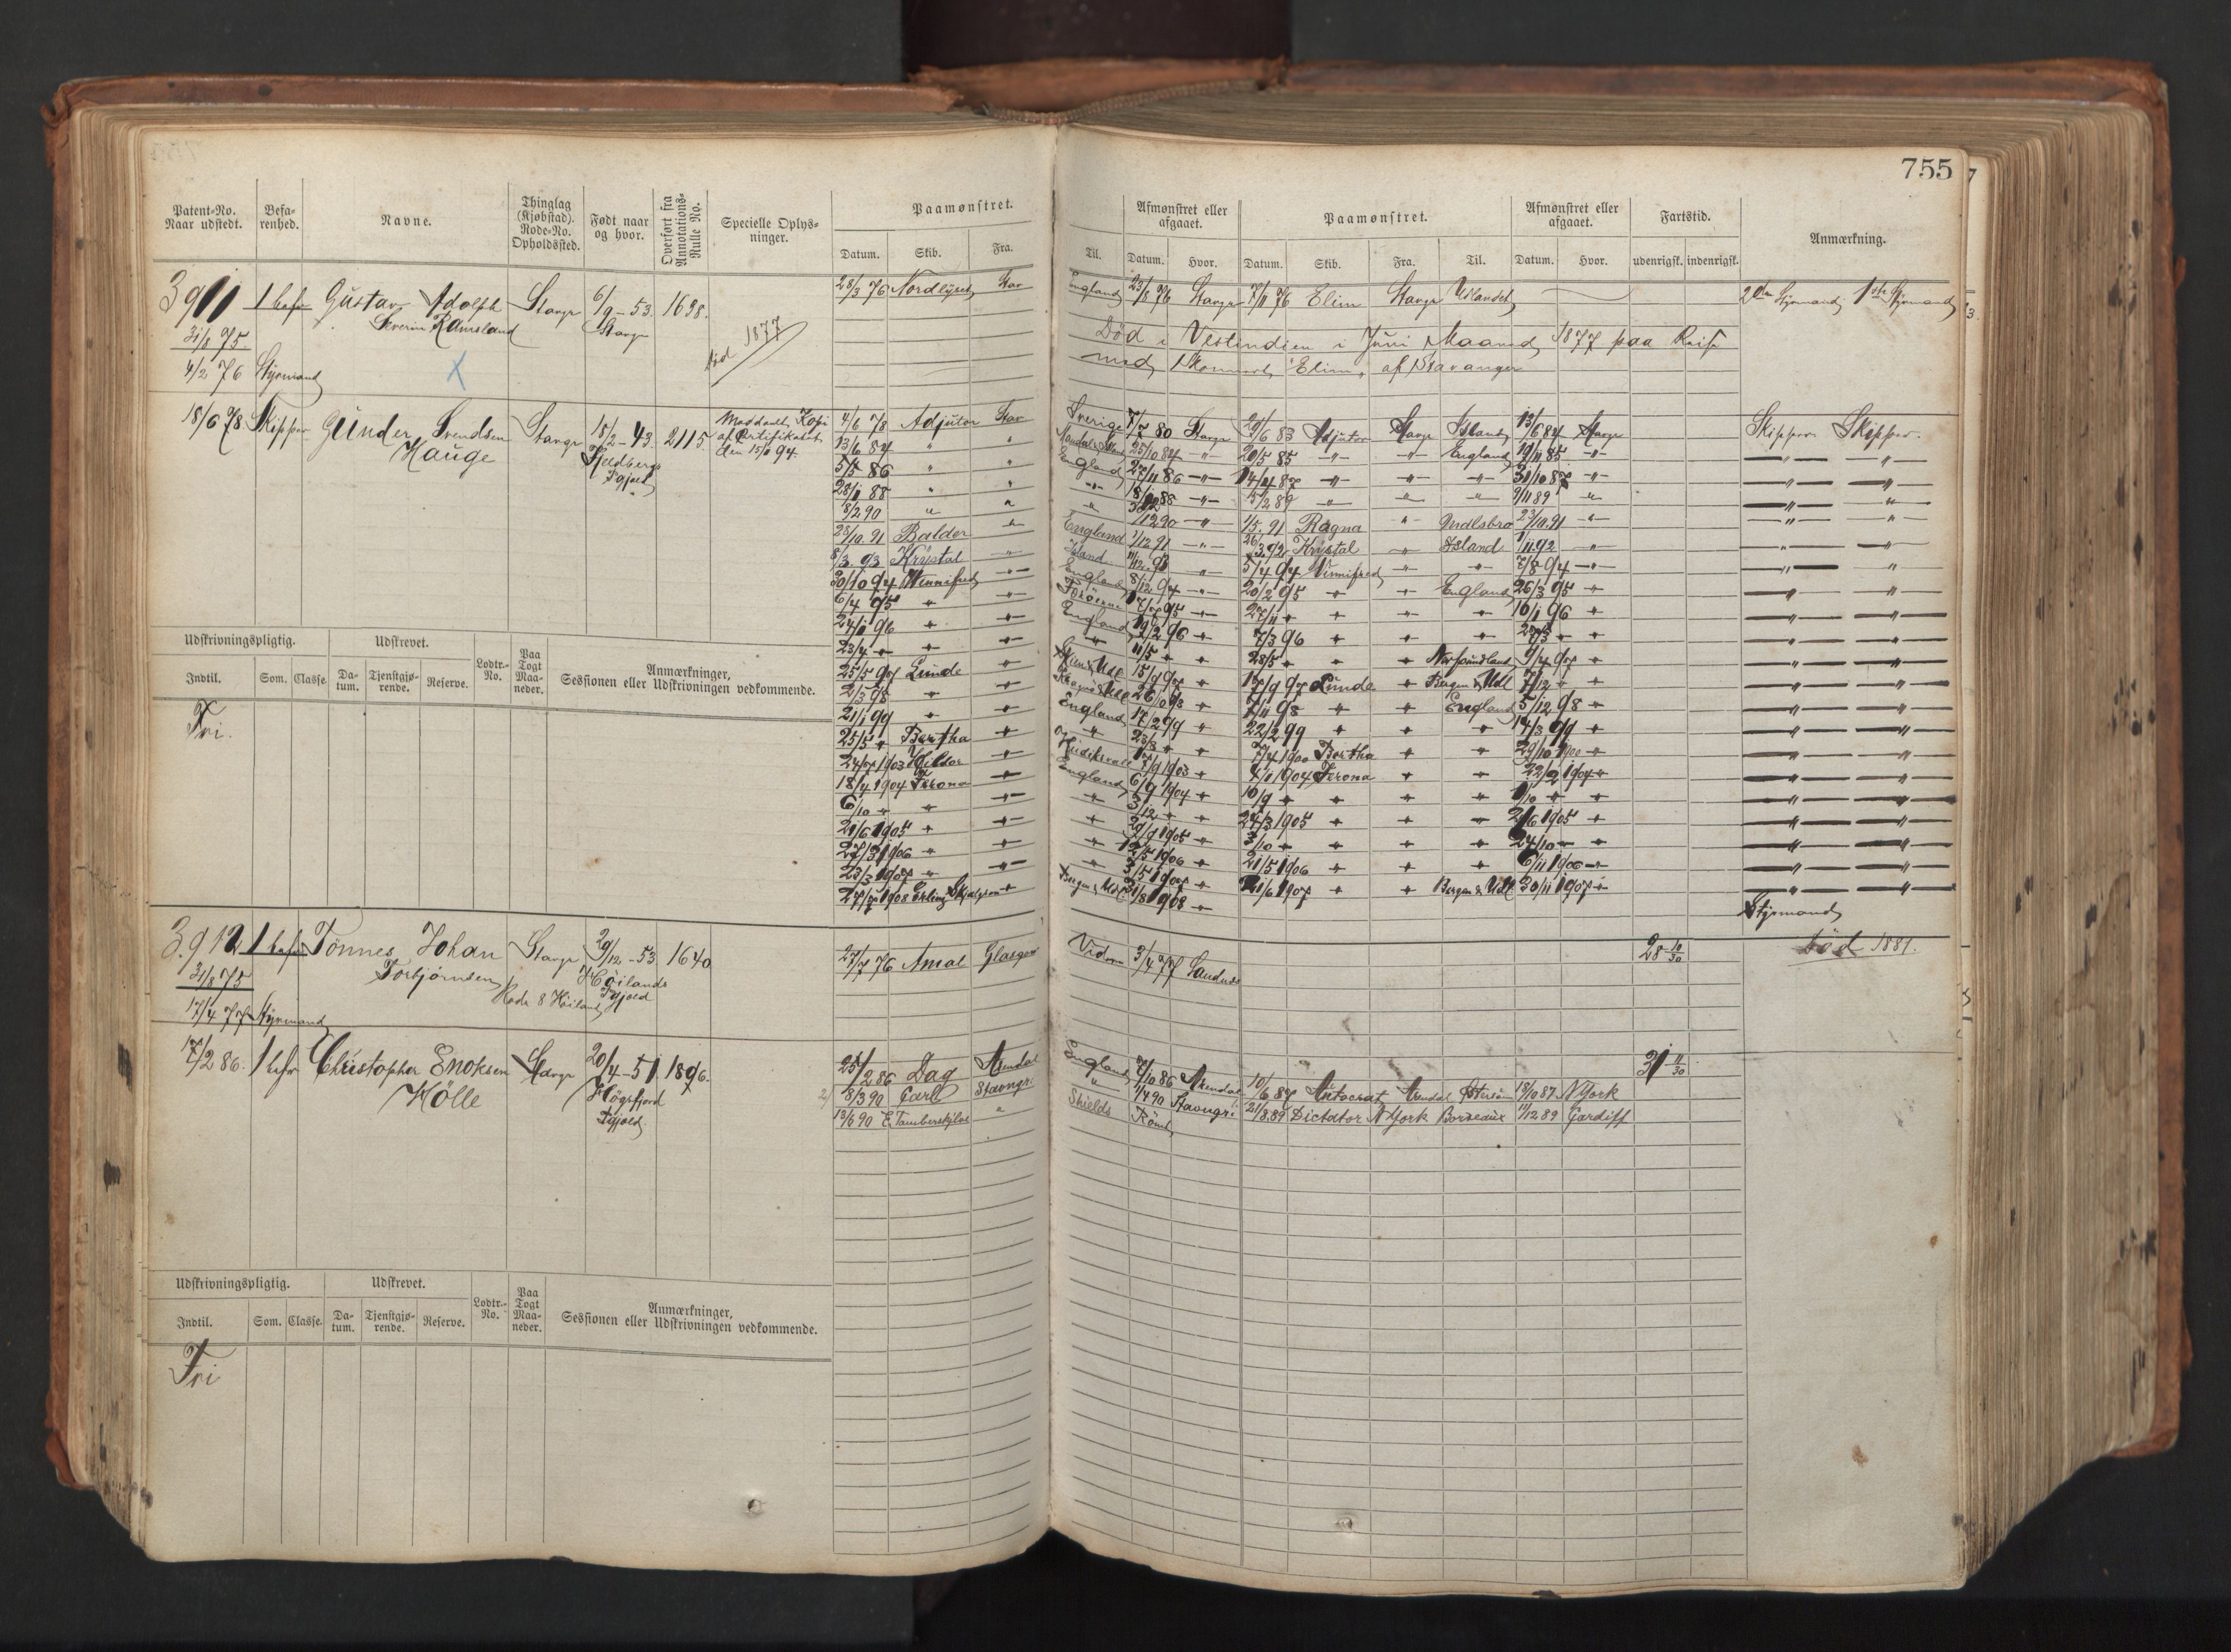 755
Patent-No. Naar udstedt. Befa-renhed. Navne. Thinglag (Kjøbstad). Rode-No. Opholdssted. Født naar og hvor. Overført fra Annotations-Rulle No. Specielle Oplys-ninger. Paamønstret. Afmønstret eller afgaaet. Paamønstret. Afmønstret eller afgaaet. Fartstid. Anmærkning.
Datum. Skib. Fra. Til. Datum. Hvor. Datum. Skib. Fra. Til. Datum. Hvor. udenrigsk. indenrigsk.
3911 1 befr Gustav Adolph Stavgr 6/9-53. 1638. 28/3 76 Nordlyset Stav England 23/8 76 Stavgr 7/11 76 Elim Stavgr Udlandet 2den Styrmand, 1ste Styrmand
Severin Ramsland Stavgr
31/8 75 død 1877 Død i Vestindien i Juni Maaned 1877 paa Reise
4/2 76 Styrmand X med Skonnert "Elim" af Stavanger
18/6 78 Skipper Gunder Svendsen Stavgr 18/2-43. 2115. Meddeelt Kopi 4/6 78 Adjutor Stav Sverige 7/7 80 Stavgr 20/6 83 Adjutor Stavgr Island 13/6 84 Stavgr Skipper Skipper.
Hauge af Certifikatet 13/6 84 " " 25/10 84 -"- 20/5 85 -"- -"- England 19/11 85 -"-
5/5 86 " " England 27/11 86 -"- 14/4 87 -"- -"- -"- 31/10 87 -"-
28/1 88 " " -"- -"- 5/2 89 -"- " " 9/11 89 "
8/2 90 " " " 1/12 90 -"- 1/5. 91 Ragna " 23/10.91 -"-
28/10 91 Balder " England 1/12 91 -"- 26/3.92 Krystal " Island 1/11.92 -"-
8/3 93 Krystal -"- Island " 5/4 94 Vinnifred " " 7/8 94 -"-
20/10 94 Winnifred -"- England 8/12 94 -"- 20/2 95 " " England 26/3 95 "
6/4 95 " " Førøerne 17/7 95 -"- 27/11 " " " " 16/1 96 "
24/1 96 " " England 19/2 96 " 7/3 96 " " "
23/4 " " " " 11/5 " " 28/5 " " " Newfoundland 9/4 97 "
25/5 97 Lunde " 15/9 97 " 17/9 97 Lunde " Bergen & Udl 7/12 " "
2/3 98 " " 26/10 98 " 7/11 98 " " England 5/12 98 "
21/1 99 " " England 17/2 99 " 22/2 99 " " " 14/3 99 "
25/5 " Bertha " " 23/8 " " 7/4 1900 Bertha " " 29/10 1900 "
24/7 1903 Hildor " 1903 " 4/1 1904 Verona " " 22/2 1904 "
18/4 1904 Verona " England 6/9 1904 " 10/9 " " " "
6/10 " " " 27/3 1905 " " " 21/6 1905 "
21/6 1905 " " " 29/9 1905 " 3/10 " " " " 24/10 " "
27/3 1906 " " " 12/5 1906 " 21/5 1906 " " " 6/11 1906 "
23/3 1907 " " " 3/5 1907 " 21/6 1907 " " Bergen & Udl 30/11 1907 "
27/7 1908 Erling Skjalgson " Bergen & Udl 31/8 1908 "
Styrmand
Udskrivningspligtig. Udskrevet. Lodtr.-No. Paa Togt Maa-neder. Anmærkninger, Sessionen eller Udskrivningen vedkommende.
Indtil. Som. Classe. Da-tum. Tjenstgjø-rende. Reserve.
Fri.
3912 1 befr Tönnes Johan Stavgr 29/12-53 1640 27/7 76 Amal Glasgow 3/4 77 28 10/30 död 1881.
Torbjörnsen Höilands Pgjæld
31/8 75 Rode 8 Höiland
17/4 77 Styrmand
17/2 86. 1 befr Christopher Enoksen Stavgr 20/4-51 1896. 25/2 86 Dag Arendal England 7/10 86 Arendal 10/6 87 Autocrat Arendal 18/10 87 N York 31 11/30
Hölle Högsfjord Pgjæld. 8/3 90 Carl Stavngr. " 1/4 90 Stavngr. 21/8.89 Dictator N York Bordeaux 11/12 89 Cardiff
13/6 90 " Shields Römt
Udskrivningspligtig. Udskrevet. Lodtr.-No. Paa Togt Maa-neder. Anmærkninger, Sessionen eller Udskrivningen vedkommende.
Indtil. Som. Classe. Da-tum. Tjenstgjø-rende. Reserve.
Fri